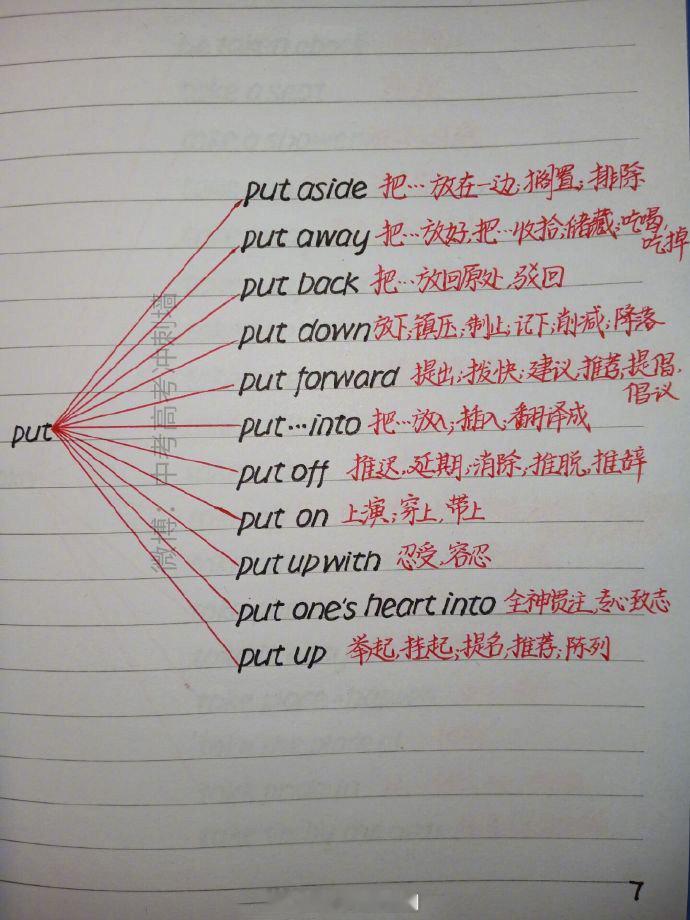 put aside 把…放在一边;搁置;排除
put away 把…放好,把…收拾;储藏;吃喝,
吃掉
put back 把…放回原处,驳回
put down 放下;镇压;制止;记下;削减;降落
put forward 提出;拨快;建议,推荐,提倡,
倡议
put
put…into 把…放入;插入;翻译成
put off 推迟,延期;消除;推脱,推辞
put on 上演;穿上,带上
put up with 忍受,容忍
put one's heart into 全神贯注,专心致志
put up 举起,挂起;提名,推荐;陈列
微博:中考高考冲刺墙
7